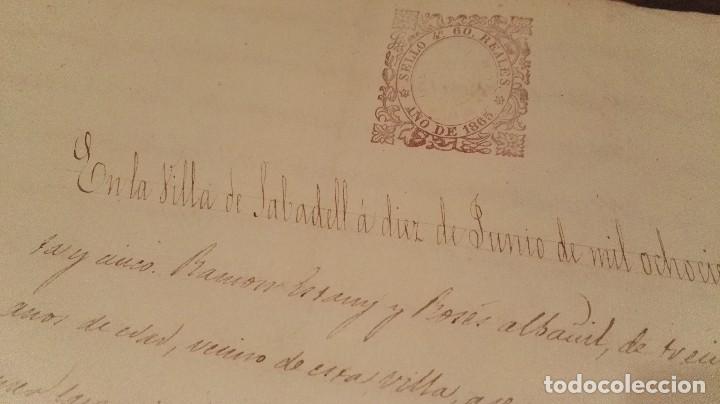 SELLO 4º 60. REALES.
AÑO DE 1865
En la Villa de Sabadell á diez de Junio de mil ochocie
ta y cinco. Ramon Estany y Rosés albañil, de trein
años de edad, vecino de esta villa, que
todocoleccion